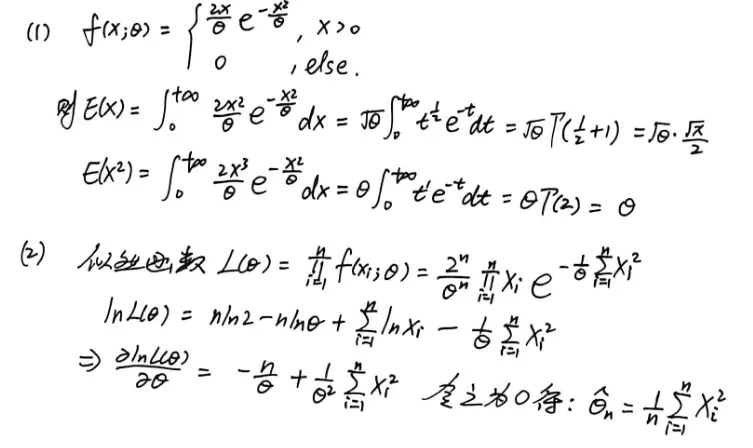 (1) f(x;θ) = { 2x/θ e^{-x²/θ}, x>0
0, else.
则 E(X) = ∫_0^{+∞} 2x²/θ e^{-x²/θ} dx = √θ ∫_0^{+∞} t^{1/2} e^{-t} dt = √θ Γ(1/2+1) = √θ · √π/2
E(X²) = ∫_0^{+∞} 2x³/θ e^{-x²/θ} dx = θ ∫_0^{+∞} t' e^{-t} dt = θ Γ(2) = θ
(2) 似然函数 L(θ) = ∏_{i=1}^{n} f(x_i;θ) = 2^n/θ^n ∏_{i=1}^{n} X_i e^{-1/θ ∑_{i=1}^{n} X_i²}
lnL(θ) = nln2 - nlnθ + ∑_{i=1}^{n} lnX_i - 1/θ ∑_{i=1}^{n} X_i²
⇒ ∂lnL(θ)/∂θ = -n/θ + 1/θ² ∑_{i=1}^{n} X_i² 令之为0得: θ̂_n = 1/n ∑_{i=1}^{n} X_i²